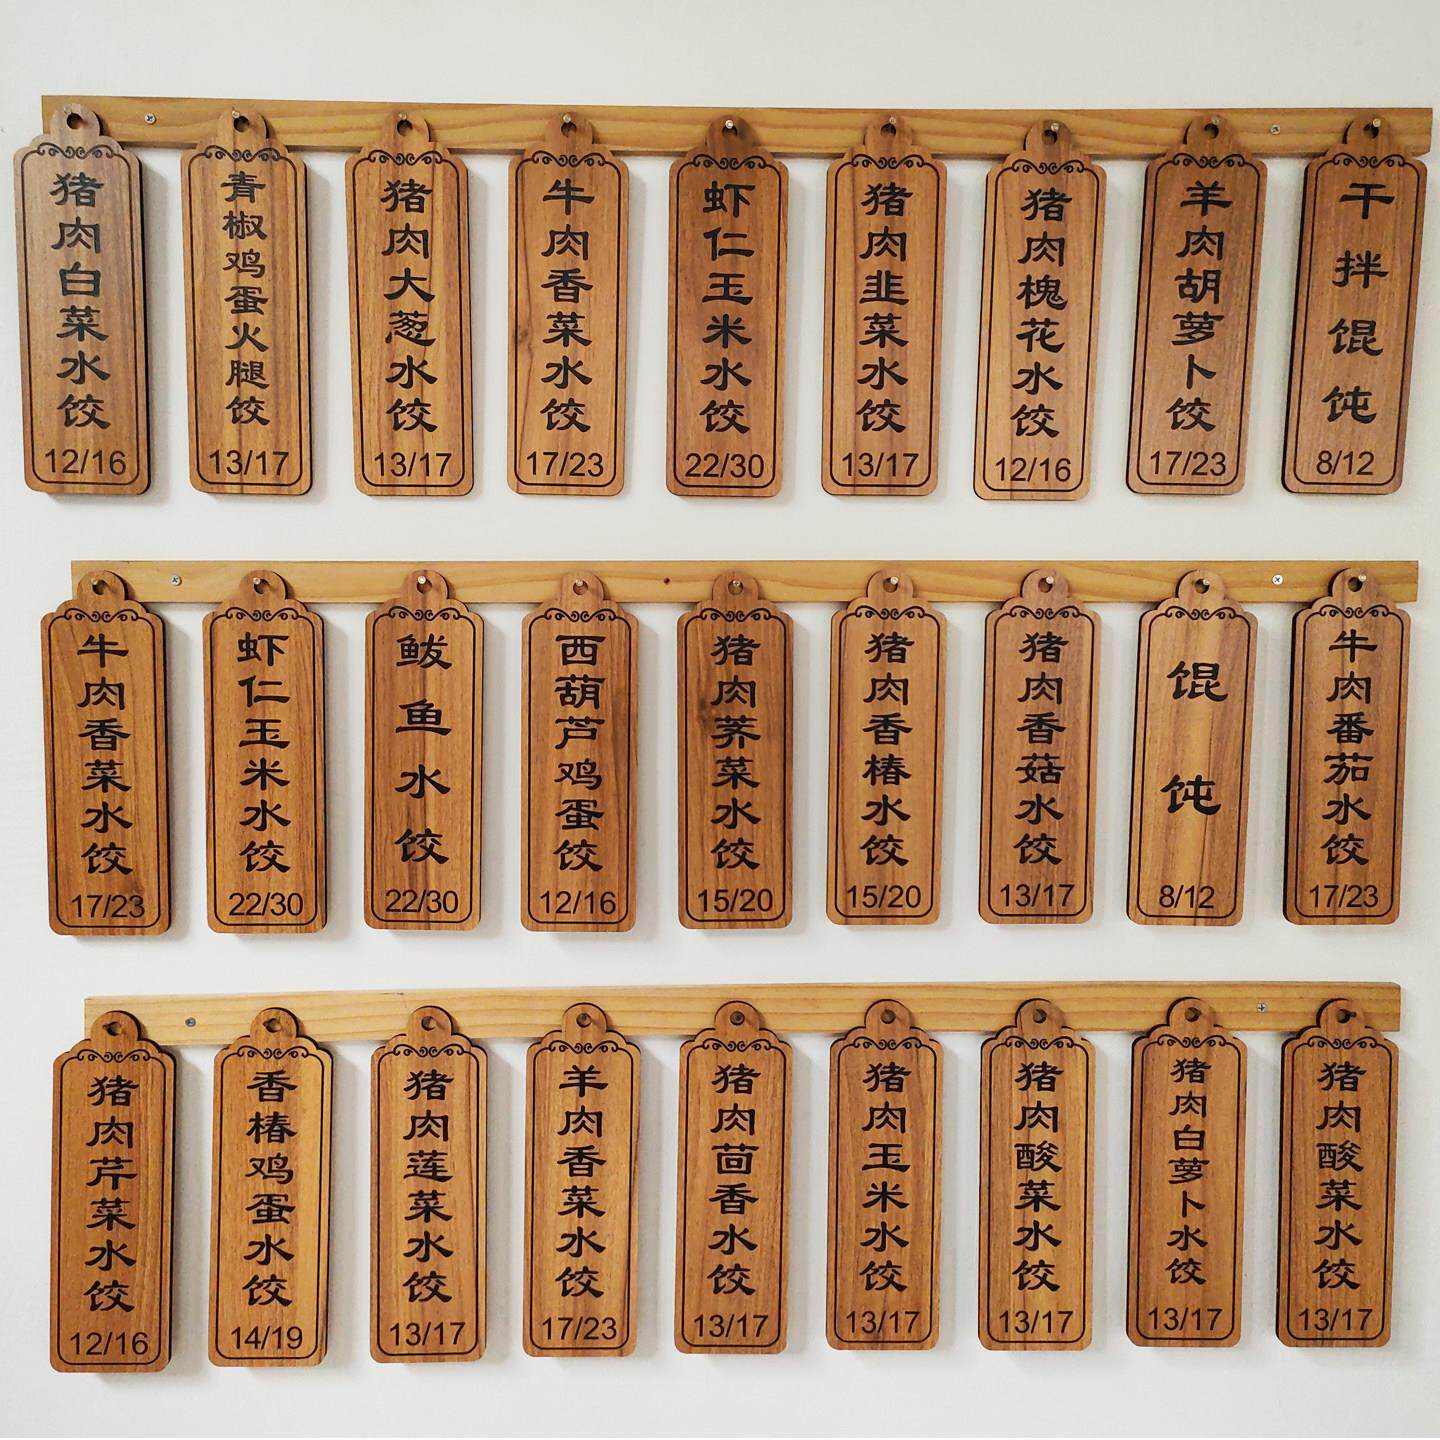 猪肉白菜水饺
12/16
青椒鸡蛋火腿饺
13/17
猪肉大葱水饺
13/17
牛肉香菜水饺
17/23
虾仁玉米水饺
22/30
猪肉韭菜水饺
13/17
猪肉槐花水饺
12/16
羊肉胡萝卜饺
17/23
干拌馄饨
8/12
牛肉香菜水饺
17/23
虾仁玉米水饺
22/30
鲅鱼水饺
22/30
西葫芦鸡蛋饺
12/16
猪肉荠菜水饺
15/20
猪肉香椿水饺
15/20
猪肉香菇水饺
13/17
馄饨
8/12
牛肉番茄水饺
17/23
猪肉芹菜水饺
12/16
香椿鸡蛋水饺
14/19
猪肉莲菜水饺
13/17
羊肉香菜水饺
17/23
猪肉茴香水饺
13/17
猪肉玉米水饺
13/17
猪肉酸菜水饺
13/17
猪肉白萝卜水饺
13/17
猪肉酸菜水饺
13/17